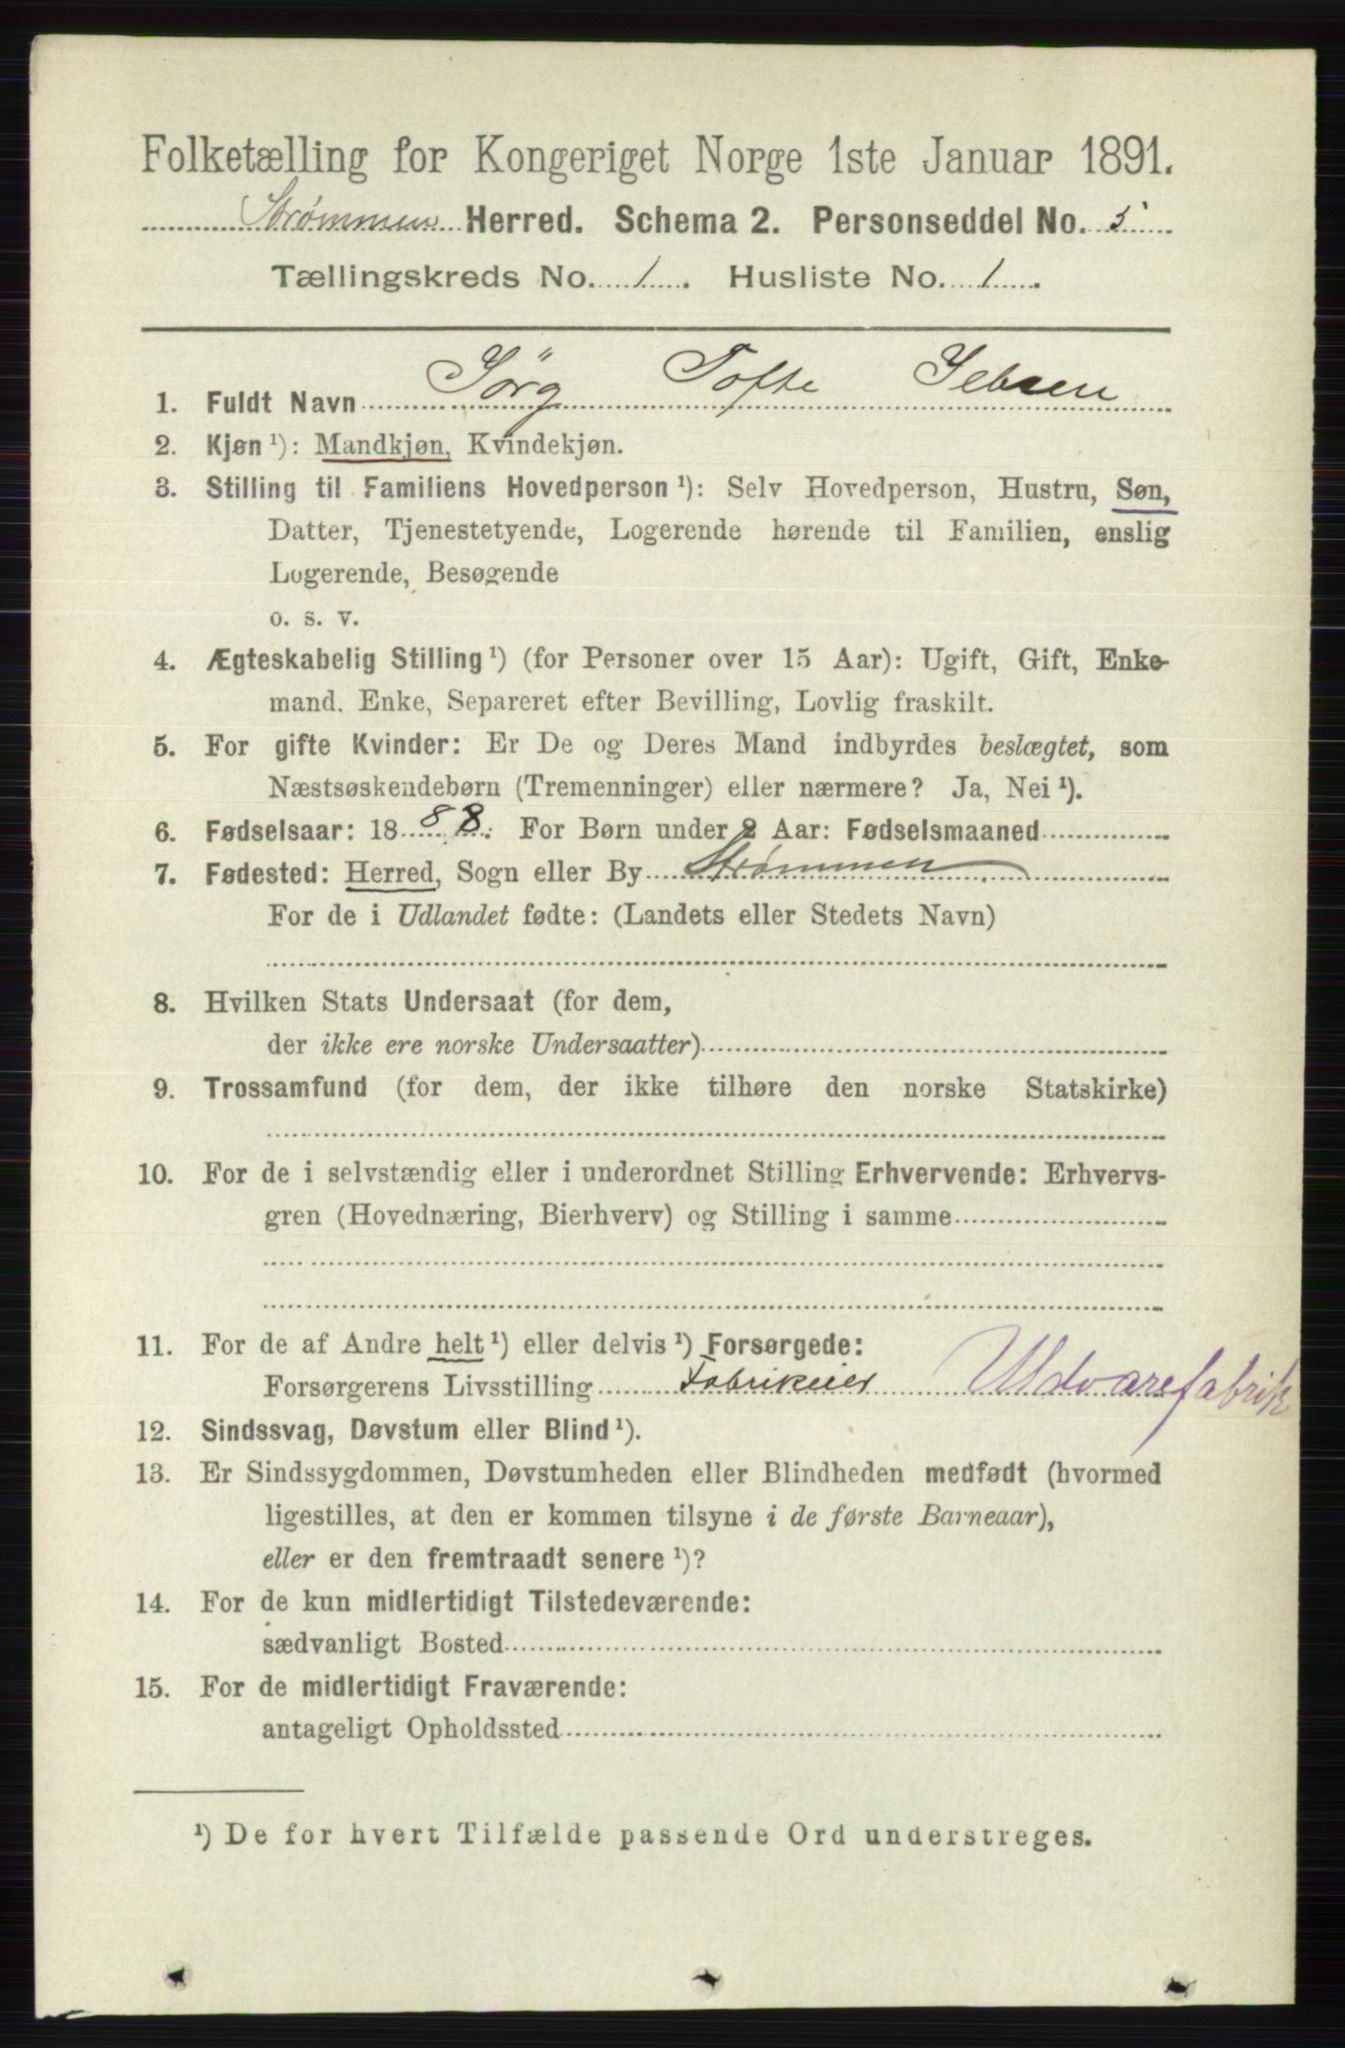 Folketælling for Kongeriget Norge 1ste Januar 1891.
Strømmen Herred. Schema 2. Personseddel No. 5
Tællingskreds No. 1. Husliste No. 1.
1. Fuldt Navn Jörg Tofte Jebsen
2. Kjøn ¹): Mandkjøn, Kvindekjøn.
3. Stilling til Familiens Hovedperson ¹): Selv Hovedperson, Hustru, Søn,
Datter, Tjenestetyende, Logerende hørende til Familien, enslig
Logerende, Besøgende
o. s. v.
4. Ægteskabelig Stilling ¹) (for Personer over 15 Aar): Ugift, Gift, Enke-
mand. Enke, Separeret efter Bevilling, Lovlig fraskilt.
5. For gifte Kvinder: Er De og Deres Mand indbyrdes beslægtet, som
Næstsøskendebørn (Tremenninger) eller nærmere? Ja, Nei ¹).
6. Fødselsaar: 1888. For Børn under 2 Aar: Fødselsmaaned
7. Fødested: Herred, Sogn eller By Strømmen
For de i Udlandet fødte: (Landets eller Stedets Navn)
8. Hvilken Stats Undersaat (for dem,
der ikke ere norske Undersaatter)
9. Trossamfund (for dem, der ikke tilhøre den norske Statskirke)
10. For de i selvstændig eller i underordnet Stilling Erhvervende: Erhvervs-
gren (Hovednæring, Bierhverv) og Stilling i samme
11. For de af Andre helt ¹) eller delvis ¹) Forsørgede:
Forsørgerens Livsstilling Fabrikeier Uldvarefabrik
12. Sindssvag, Døvstum eller Blind ¹).
13. Er Sindssygdommen, Døvstumheden eller Blindheden medfødt (hvormed
ligestilles, at den er kommen tilsyne i de første Barneaar),
eller er den fremtraadt senere ¹)?
14. For de kun midlertidigt Tilstedeværende:
sædvanligt Bosted
15. For de midlertidigt Fraværende:
antageligt Opholdssted
¹) De for hvert Tilfælde passende Ord understreges.